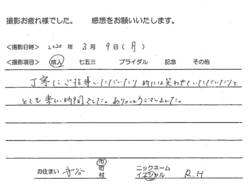 撮影お疲れ様でした。 感想をお願いいたします。
<撮影日時> 2020 年 3 月 9 日 ( 月 )
<撮影項目> 成人 七五三 ブライダル 記念 その他
丁寧にご指導いただいたり 時には笑わせていただいたりと
とても楽しい時間でした。ありがとうございました。
お住まい 守谷 市 町 村 ニックネーム イニシャル R.H